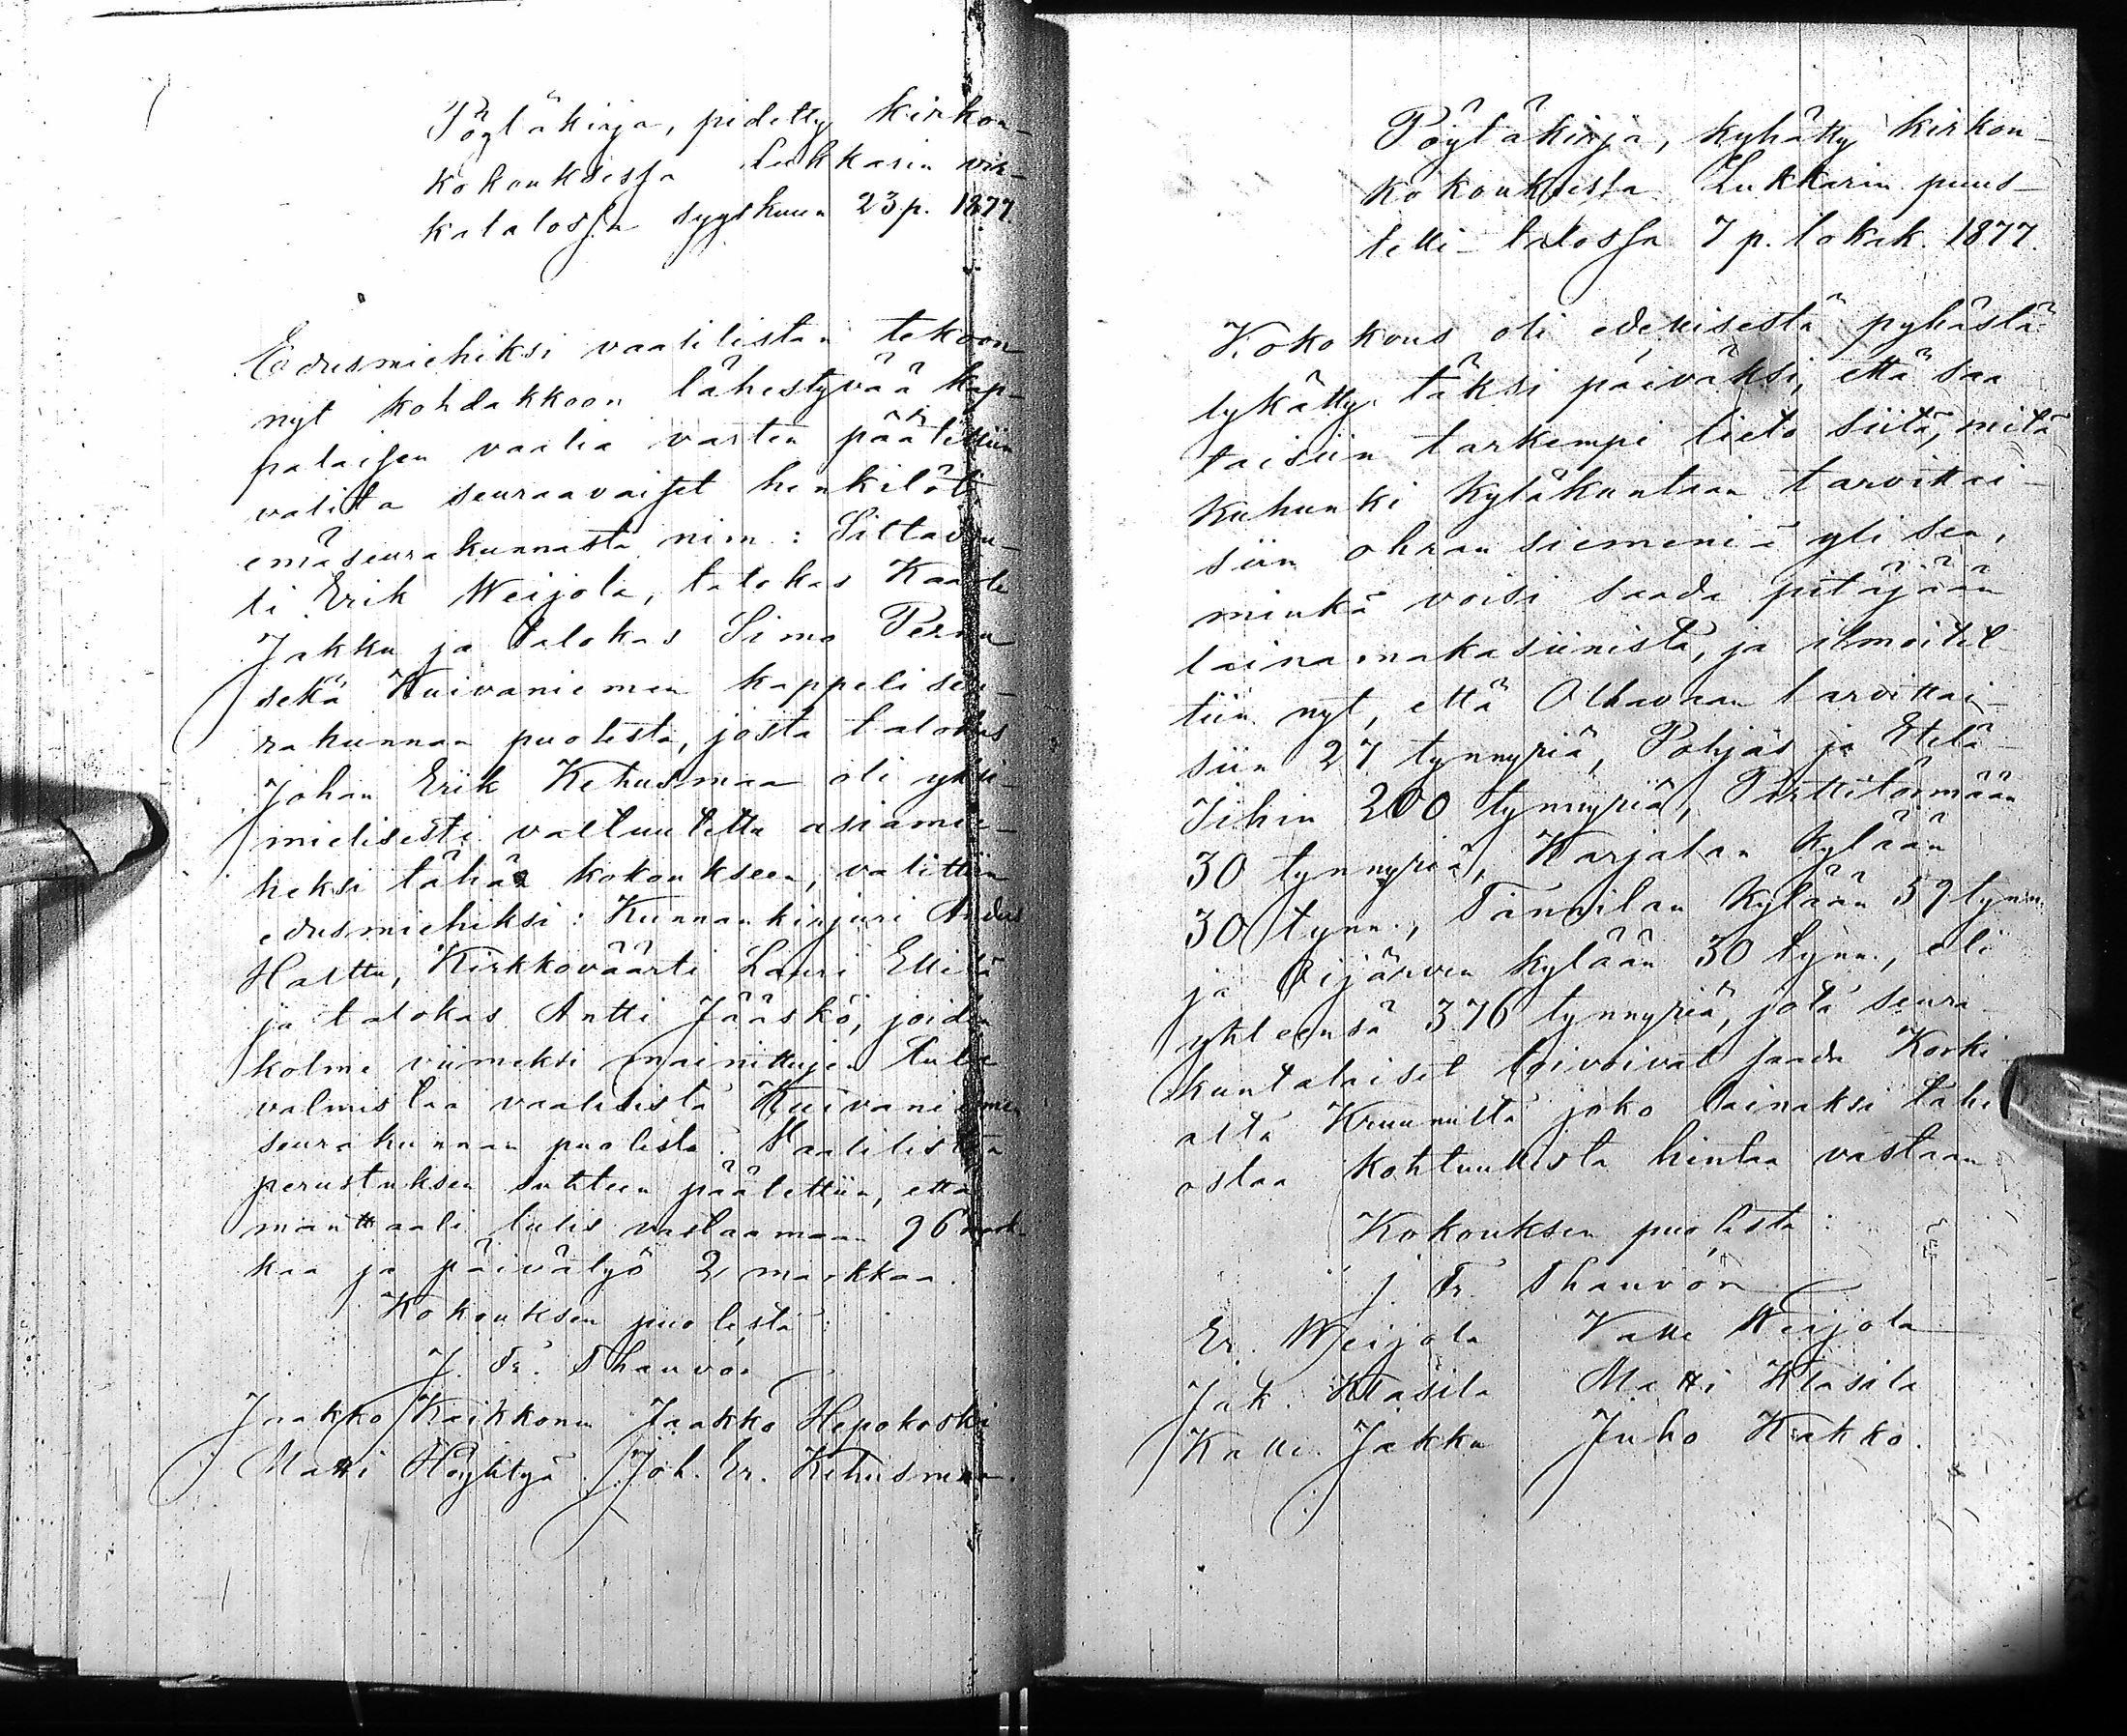 Pöytäkirja, pidetty kirkon-
kokouksessa Lukkarin vir-
katalossa syyskuun 23 p. 1877.
Edusmiehiksi vaalilistan tekoon
nyt kohdakkoon lähestyvää kap-
palaisen vaalia varten päätettiin
valita seuraavaiset henkilöt:
emäseurakunnasta nim: Siltavou-
ti Erik Weijola, talokas Kaarle
Jakku ja talokas Simo Pernu
sekä Kuivaniemen kappeliseu-
rakunnan puolesta, josta talokas
Johan Erik Kehusmaa oli yksi-
mielisesti valtuutettu asiamie-
heksi tähän kokoukseen, valittiin
edusmiehiksi: Kunnankirjuri Andus
Harttu, Kirkkoväärti Lauri Ellilä
ja talokas Antti Jääskö, joiden
kolme viimeksi mainittujen tulee
valmistaa vaalilista Kuivaniemen
seurakunnan puolesta. Vaalilistan
perustuksen suhteen päätettiin, että
manttaali tulis vastaamaan 96 mark-
kaa ja päivätyö 2 markkaa.
Kokouksen puolesta:
J. Fr. Thauvón
Jaakko Kaikkonen Jaakko Hepokoski
Matti Höyhtyä. Joh. Er. Kehusmaa.
Pöytäkirja, kyhätty kirkon-
kokouksesta Lukkarin puus-
telli-talossa 7 p. lokak. 1877.
Kokokous oli edellisestä pyhästä
lykätty täksi päiväksi, että saa
taisiin tarkempi tieto siitä, mitä
kuhunki kyläkuntaan tarvittai-
siin ohran siemeniä yli sen,
minkä voisi saada pitäjään
lainamakasiinista, ja ilmoitet-
tiin nyt, että Olhavaan tarvittai-
siin 27 tynnyriä, Pohjas ja Etelä-
Iihin 200 tynnyriä, Pirttitörmään
30 tynnyriä, Karjalan kylään
30 tynn., Tannilan kylään 59 tynn.
ja Oijärven kylään 30 tynn., eli
yhteensä 376 tynnyriä, jota seura-
kuntalaiset toivoivat saada Korki-
alta Kruunulta joko lainaksi tahi
ostaa kohtuullista hintaa vastaan
Kokouksen puolesta:
J. Fr. Thauvón
Er. Weijola Kalle Weijola
Jak. Klasila Matti Klasila
Kalle Jakku Juho Kakko.